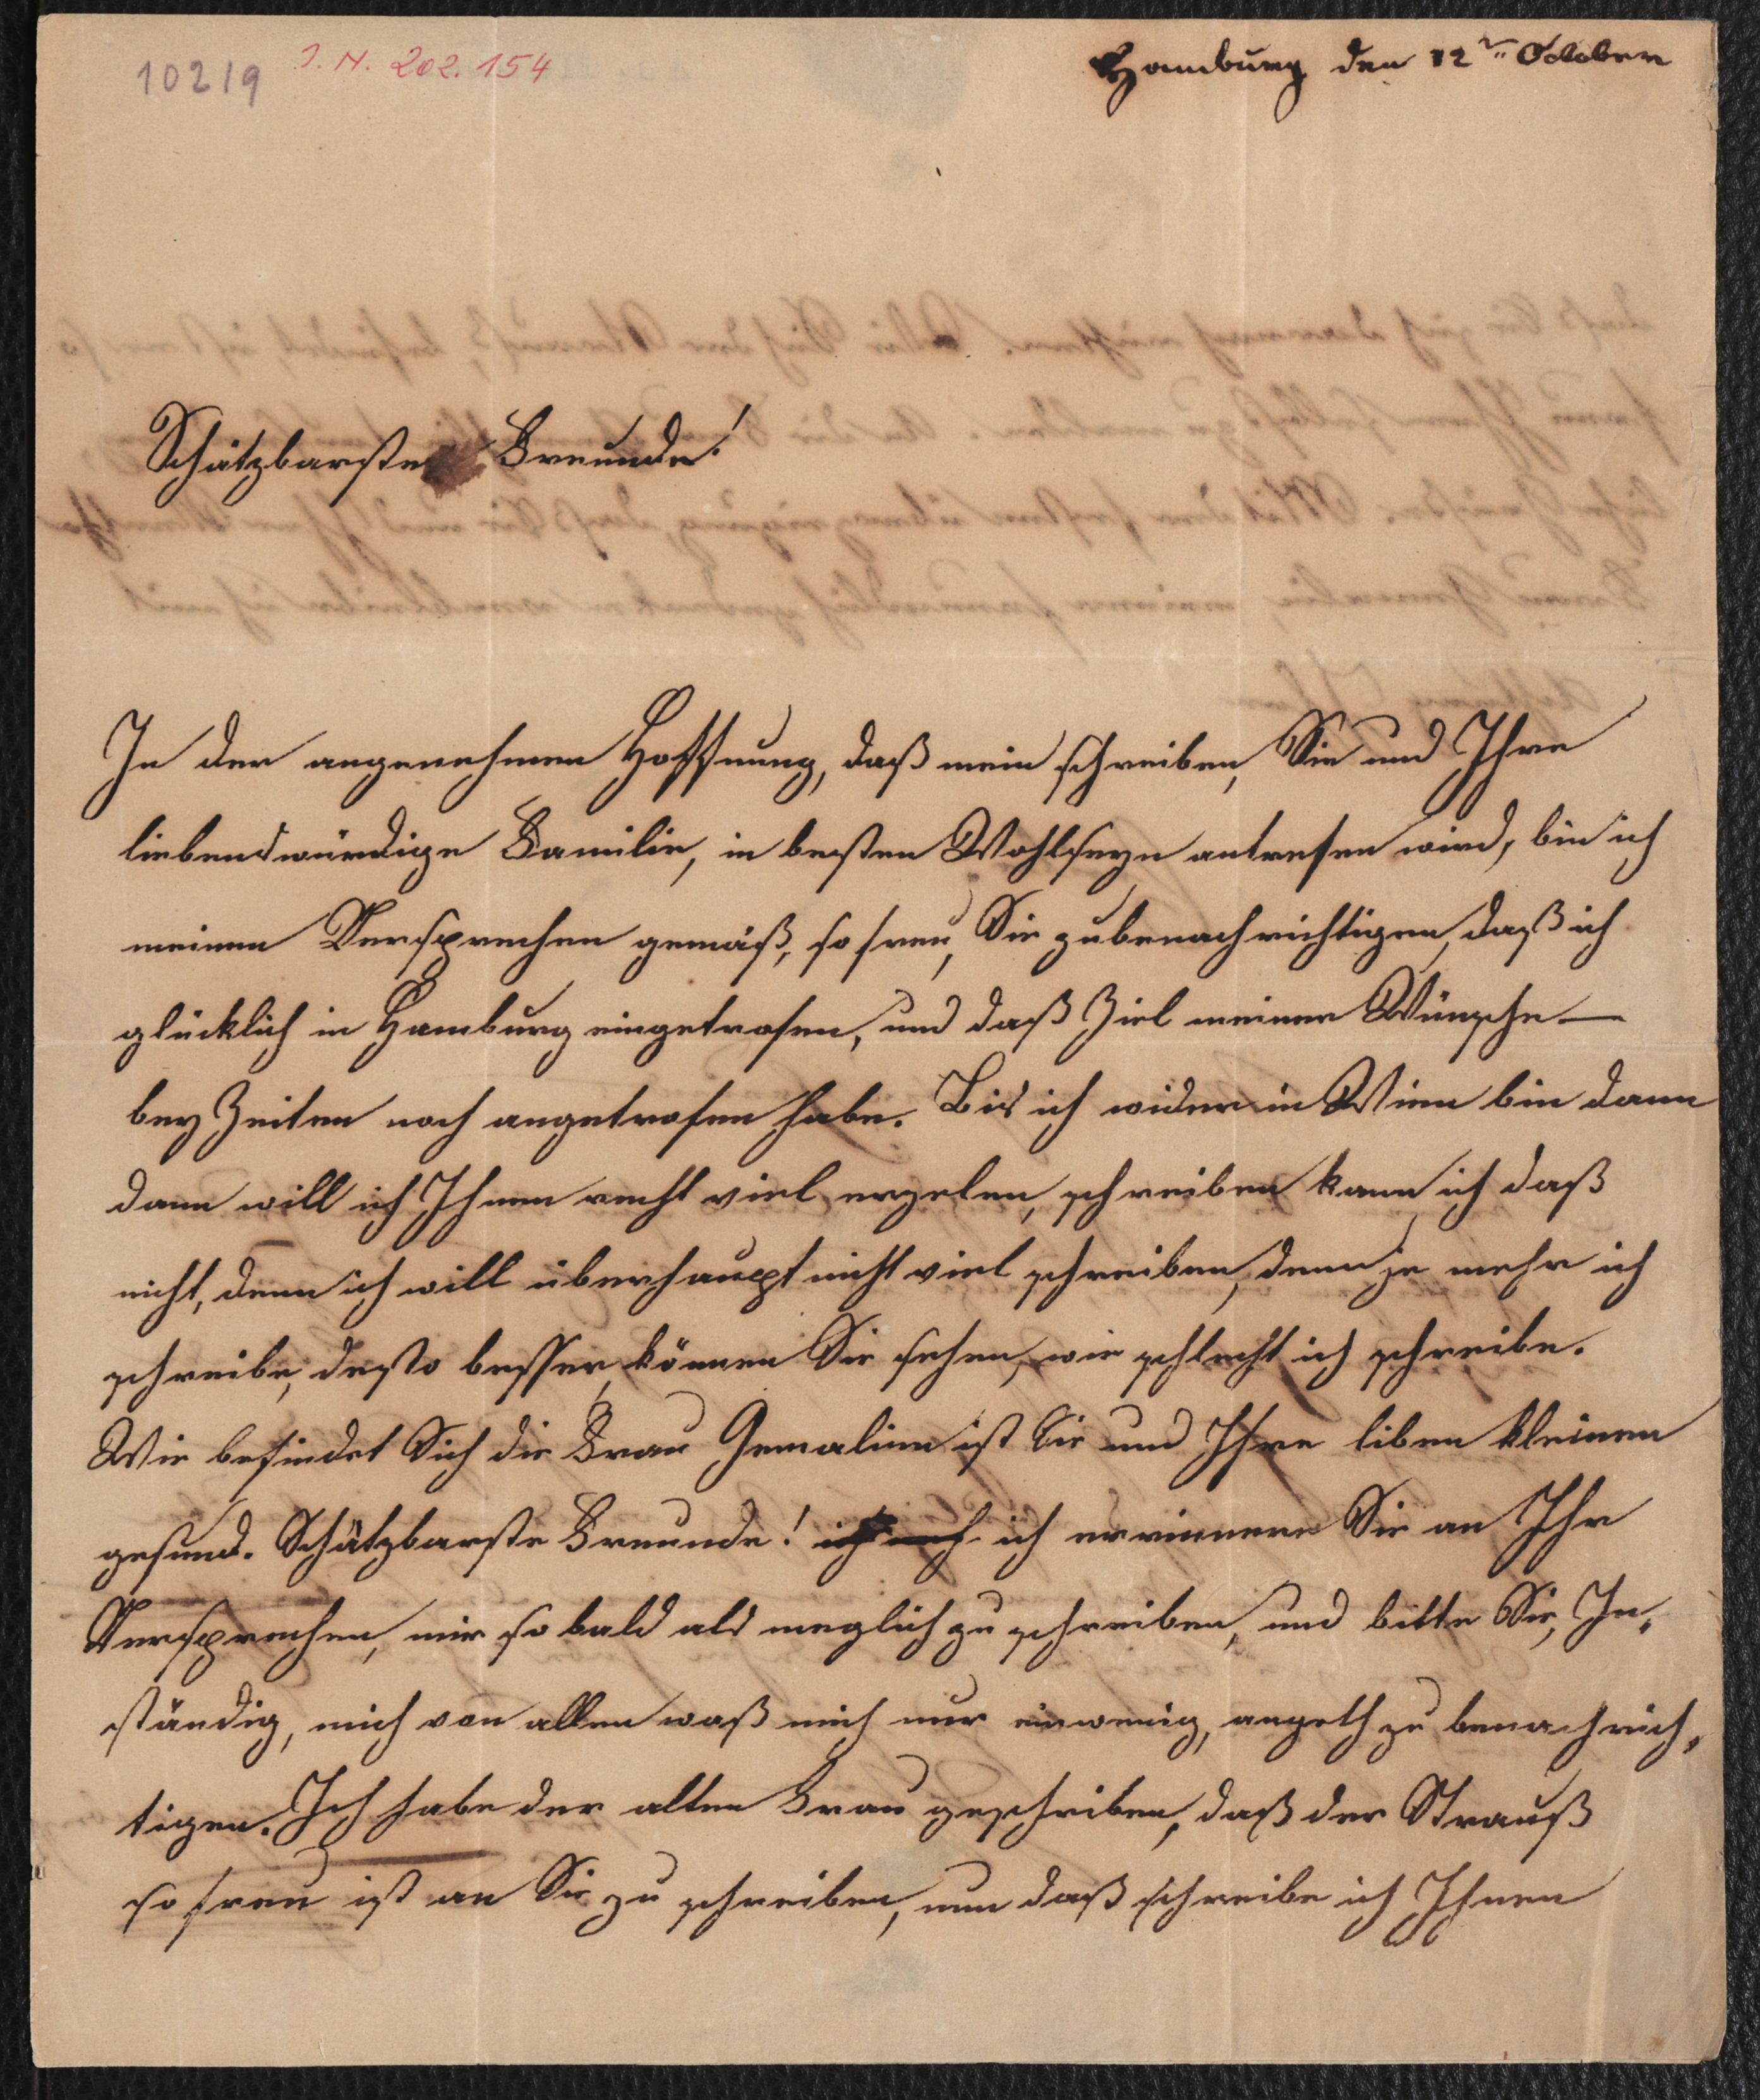 10219 J. N. 202.154
Hamburg den 12ten October
Schätzbarste Freunde!
In der angenehmen Hoffnung, daß mein schreiben, Sie und Ihre
liebenswürdige Familie, in besten Wohlseyn antrefen wird, bin ich
meinem Versprechen gemäß, so frey, Sie zubenachrichtigen, daß ich
glücklich in Hamburg eingetrofen, und daß Ziel meiner Wünsche —
bey Zeiten noch angetrofen habe. Bis ich wider in Wien bin dann
dann will ich Ihnen recht viel erzelen, schreiben kann ich daß
nicht, denn ich will überhaupt nicht viel schreiben, denn je mehr ich
schreibe, desto besser können Sie sehen, wie schlecht ich schreibe.
Wie befindet Sich die Frau Gemalinn ist Sie und Ihre liben kleinen
gesund. Schätzbarste Freunde! ich ich errinnere Sie an Ihr
Versprechen, mir so bald als meglich zu schreiben, und bitte Sie, In„
ständig, mich von allen waß mich nur einwenig, angeth zu benachrich„
tigen. Ich habe der alten Frau geschriben, daß der Strauß
so freu ist an Sie zu schreiben, nun daß schreibe ich Ihnen